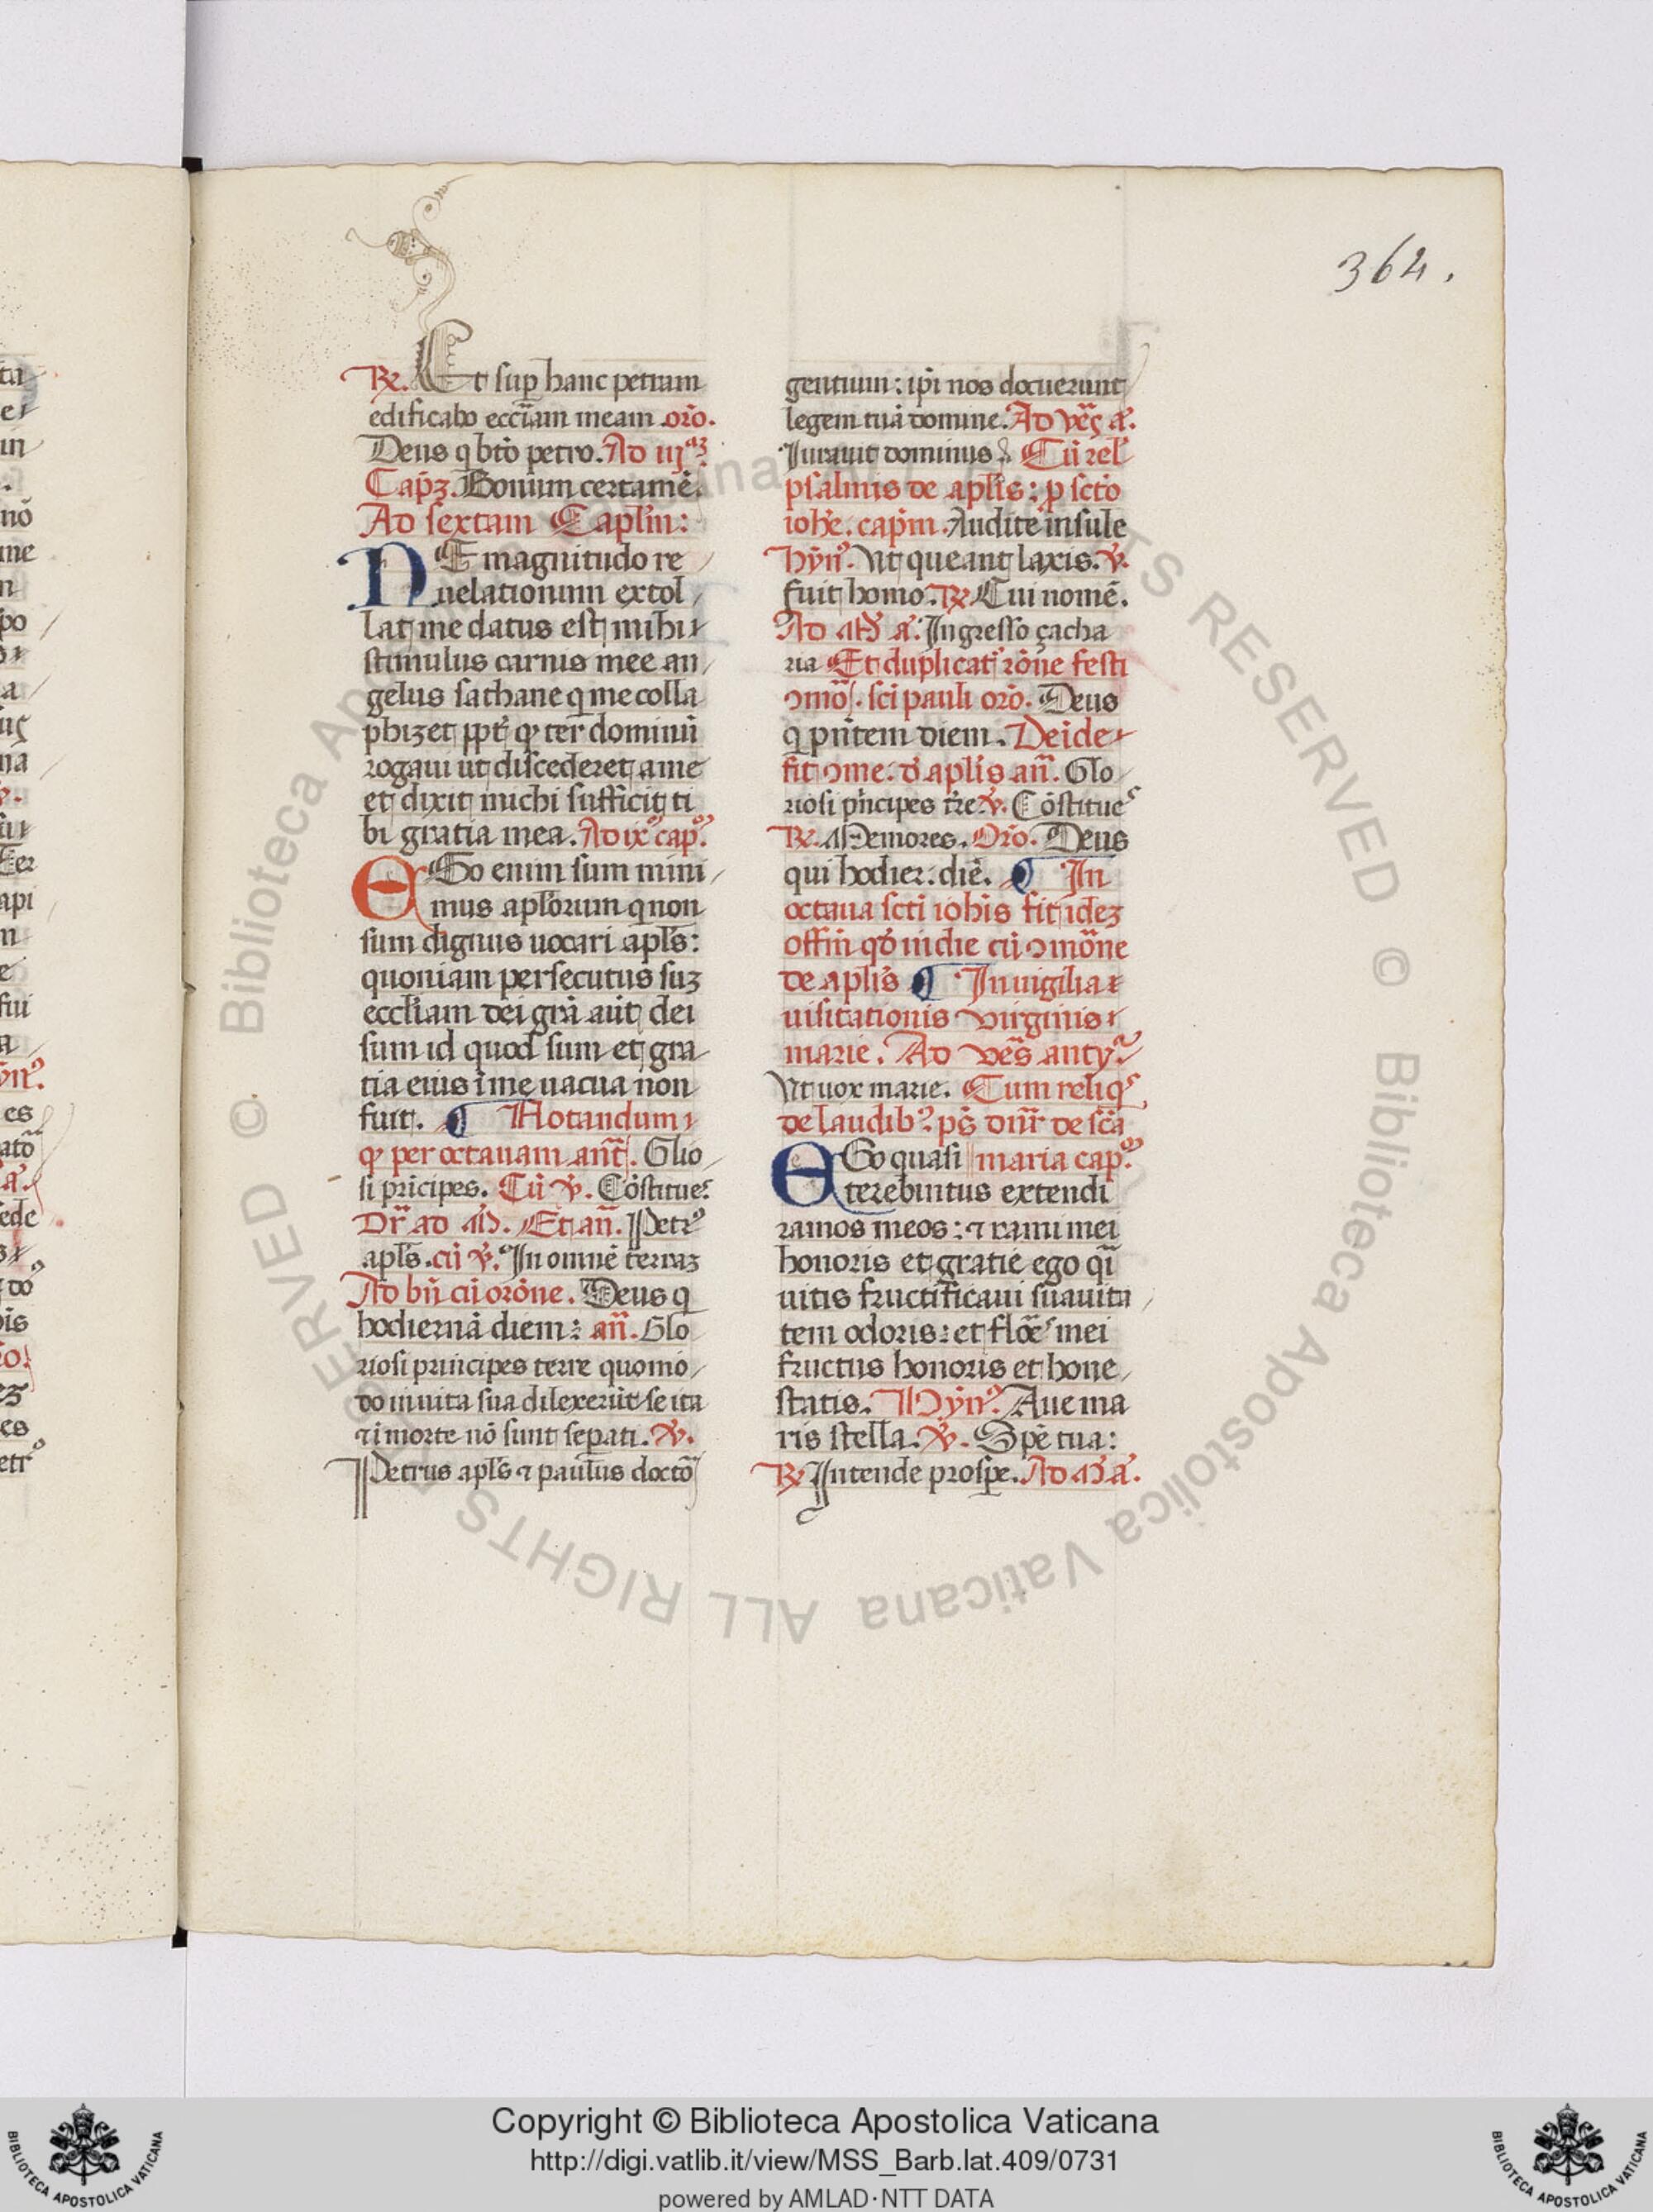 364.
℞. Et sup̱ hanc petram
edificabo ecc̄iam meam. or̄o.
Deus q̇ btō petro. Ad iijᵃꝫ
Cap̄ꝫ. Bonum certamē.
Ad sextam Capl̄m:
NE magnitudo re
uelationum extol
lat me datus est mihi
stimulus carnis mee an
gelus sathane q̇ me colla
phizet ꝓpt̄ qꝫ ter dominū
rogaui ut discederet a me
et dixit michi sufficit ti
bi gratia mea. Ad ixᵒ cap̄ᵒ.
EGo enim sum mini
mus apl̄orum q̇ non
sum dignus uocari apl̄s:
quoniam persecutus suꝫ
eccl̄iam dei grā aūt dei
sum id quod sum et gra
tia eius ī me uacua non
fuit. ¶ Notandum
ꝙ per octauam ant̄. Glio
si prīcipes. Cū ℣. Cōstitueˢ
Dr̄ ad M̄. Et an̄. Petrꝰ
apl̄s. cū ℣. In omnē terraꝫ
Ad bn̄ cū orōne. Deus q̇
hodiernā diem: an̄. Glo
riosi principes terre quomō
do in uita sua dilexerūt se ita
⁊ ī morte nō sunt sep̱ati. ℣.
Petrus apl̄s ⁊ paulus doctō
gentium: ip̄i nos docuerunt
legem tuā domine. Ad ve᷒s a᷒.
Iurauit dominus. Cū rel̄
psalmis de apl̄is: ꝑ scto
ioh̄e. cap̄m. Audite insule
Hȳnᵒ. Vt queant laxis. ℣.
fuit homo. ℞. Cui nomē.
Ad M̄ a᷒. Ingresso çacha
ria Et duplicat᷑ r̄one festi
ꝯmō. sc̄i pauli or̄o. Deus
q̇ pn̄tem diem. Deīde
fit ꝯme. d̄ apl̄is an̄. Glo
riosi p̄ncipes tr̄e. ℣. Cōstitueˢ
℞. Memores. Or̄o. Deus
qui hodier. diē. ¶ In
octaua scti ioh̄is fit ideꝫ
offm̄ qd̄ in die cū ꝯmōne
de apl̄is ¶ In uigilia
uisitationis virginis
marie. Ad ve᷒s antyᵃ
Vt uox marie. Cum reliqˢ
de laudibꝰ. ps̄ dnr̄ de sc̄a
EGo quasi maria cap̄ᵒ.
terebintus extendi
ramos meos: ⁊ rami mei
honoris et gratie ego qͣi
uitis fructificaui suauita
tem odoris: et flōe᷒ mei
fructus honoris et hone
statis. Hȳnᵒ. Aue ma
ris stella. ℣. Spē tua:
℞. Intende prosp̱e. Ad M̄ a᷒.
© Biblioteca Apostolica Vaticana ALL RIGHTS RESERVED © Biblioteca Apostolica Vaticana ALL RIGHTS RESERVED
Copyright © Biblioteca Apostolica Vaticana
http://digi.vatlib.it/view/MSS_Barb.lat.409/0731
powered by AMLAD·NTT DATA
BIBLIOTECA APOSTOLICA VATICANA
BIBLIOTECA APOSTOLICA VATICANA